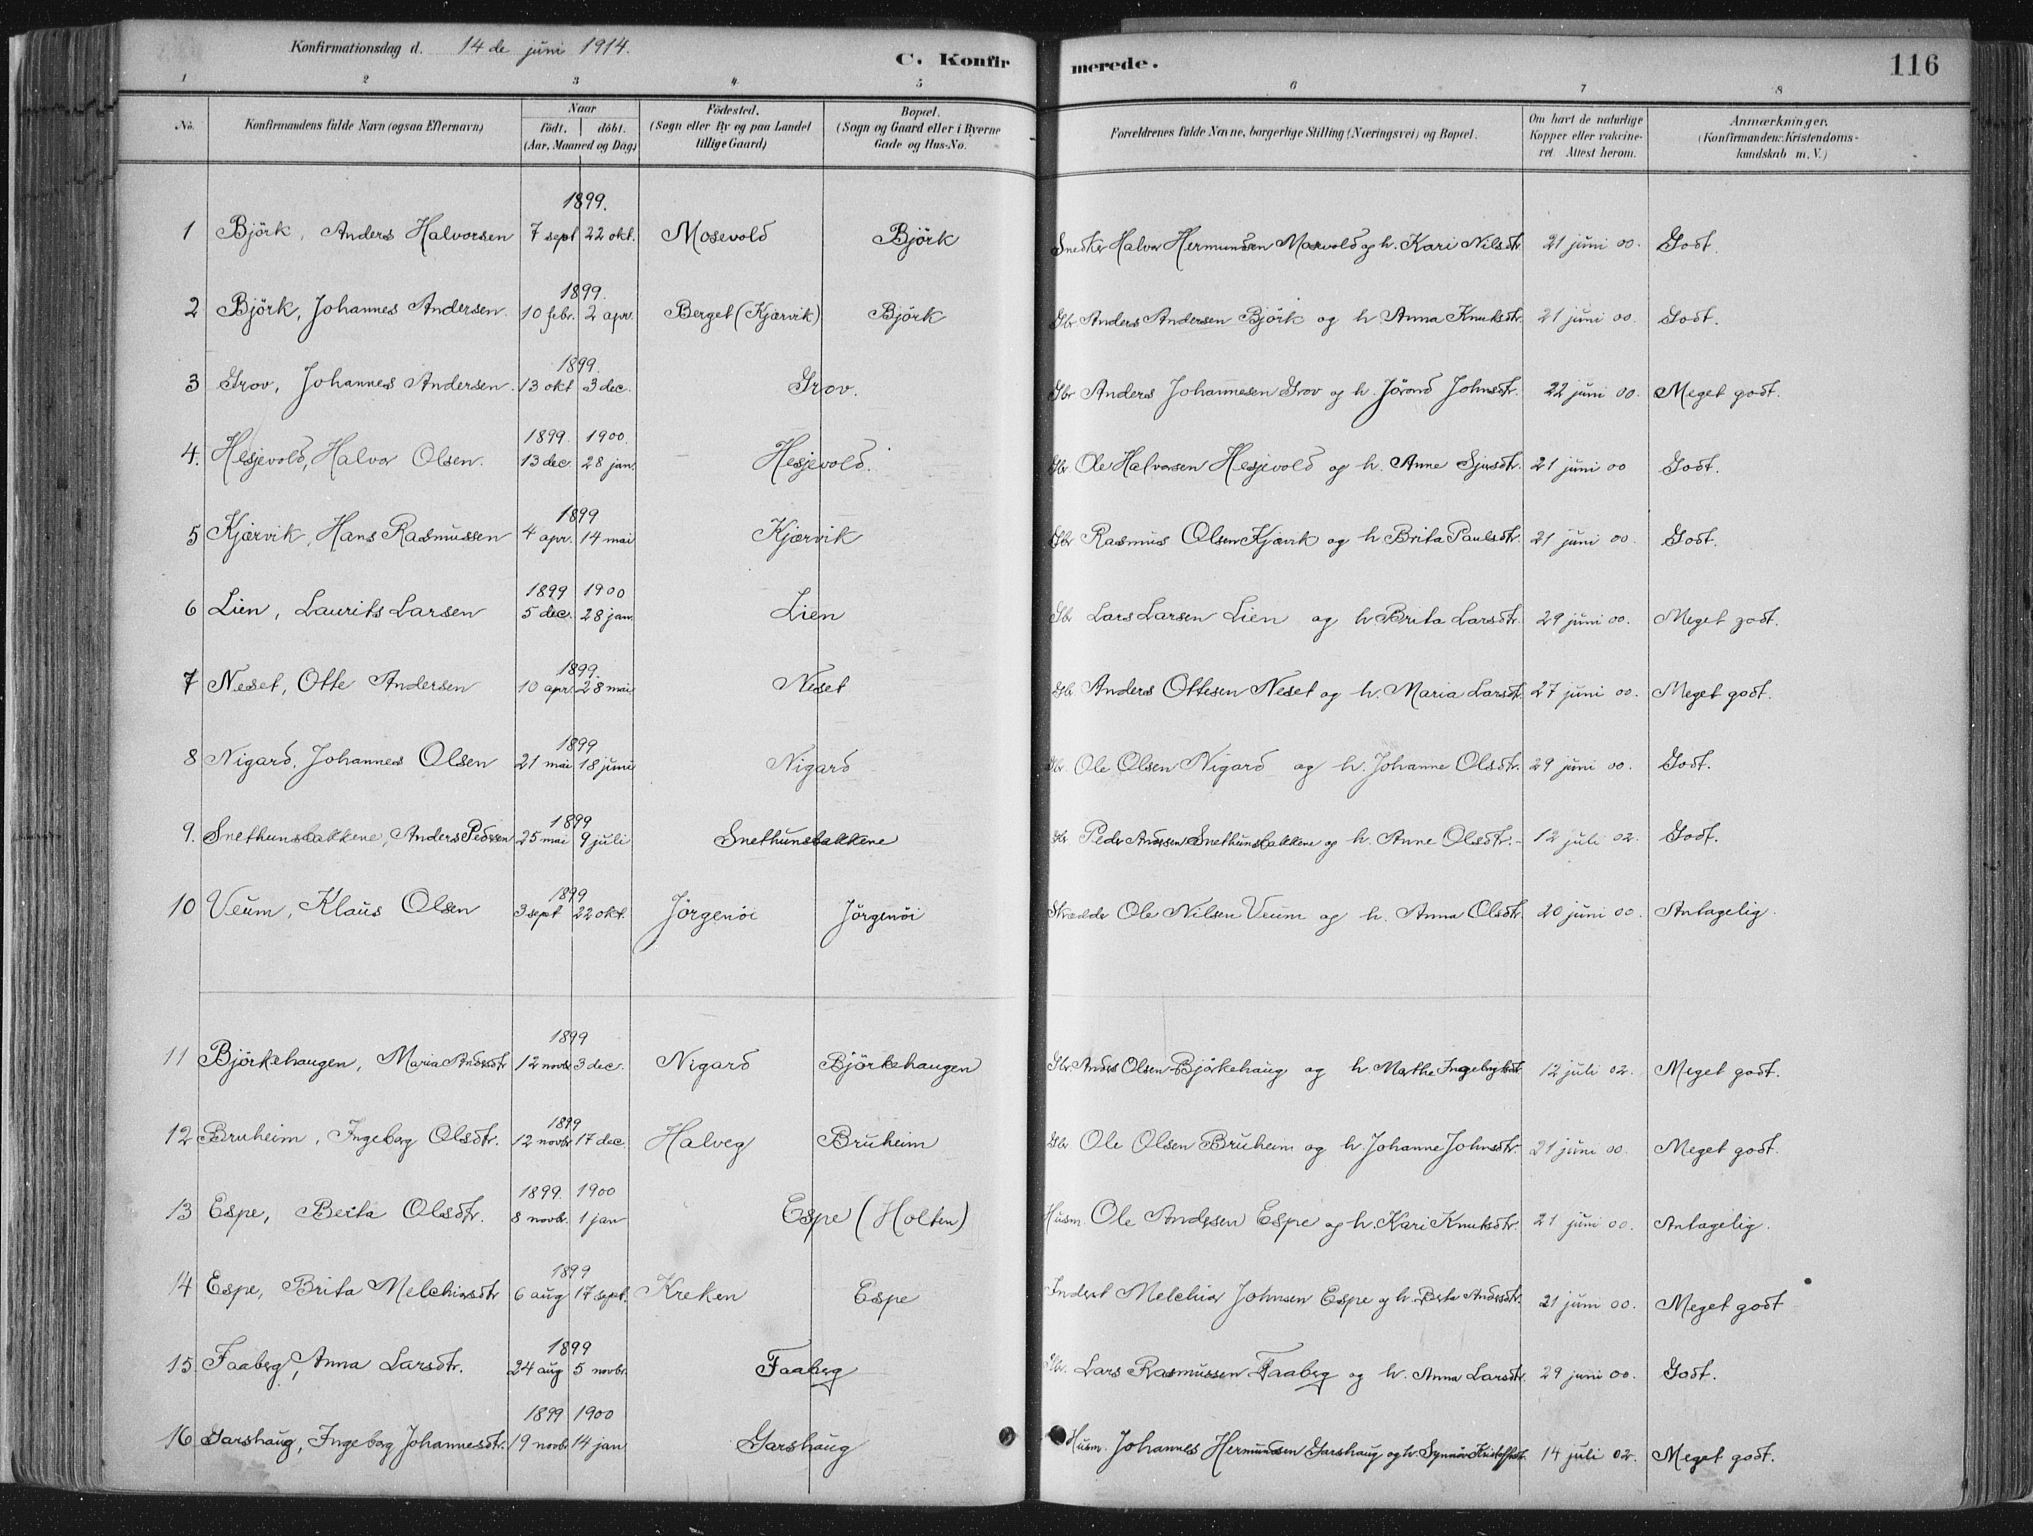 Konfirmationsdag d. 14 de juni 1914.
C. Konfirmerede.
116
1 2 3 4 5 6 7 8
No. Konfirmandens fulde Navn (ogsaa Efternavn) Naar født. døbt. (Aar, Maaned og Dag) Fødested. (Sogn eller By og paa Landet tillige Gaard) Bopæl. (Sogn og Gaard eller i Byerne Gade og Hus-No. Forældrenes fulde Navne, borgerlige Stilling (Næringsvei) og Bopæl. Om havt de naturlige Kopper eller vakcineret. Attest herom. Anmærkninger. (Konfirmandens Kristendomskundskab m. V.)
1899.
1 Björk, Anders Halvorsen 7 sept 22 okt. Mosevold Björk Snedker Halvor Hermundsen Mosevold og h. Kari Nilsdtr. 21 juni 00. Godt.
1899.
2 Björk, Johannes Andersen. 10 febr. 2 apr. Berget (Kjærvik) Björk Gbr. Anders Andersen Björk og h. Anna Knutsdtr. 21 juni 00. Godt.
1899.
3 Grov, Johannes Andersen. 13 okt 3 dec. Grov. Gbr Anders Johannesen Grov og h. Jörond Johnsdtr. 22 juni 00. Meget godt.
1899. 1900.
4. Hesjevold, Halvor Olsen. 13 dec. 28 jan. Hesjevold. Gbr Ole Halvorsen Hesjevold og h. Anne Sjursdtr. 21 juni 00 Godt.
1899
5 Kjærvik, Hans Rasmussen 4 apr. 14 mai Kjærvik Gbr Rasmus Olsen Kjærvik og h Brita Paulsdtr. 21 juni 00. Godt.
1899 1900
6 Lien, Laurits Larsen 5 dec. 28 jan. Lien Gbr Lars Larsen Lien og h Brita Larsdtr. 29 juni 00. Meget godt.
1899.
7 Neset, Otte Andersen 10 apr. 28 mai Neset Gbr. Anders Ottesen Neset og h. Maria Larsdtr. 27 juni 00. Meget godt.
1899
8 Nigard, Johannes Olsen 21 mai 18 juni Nigard Gbr. Ole Olsen Nigard og h. Johanne Olsdtr. 29 juni 00. Godt.
1899
9. Snethunsbakkene, Anders Pedersen 25 mai 9 juli Snethunsbakkene Gbr Peder Andersen Snethunsbakkene og h. Anne Olsdtr. 12 juli 02. Godt.
1899
10 Veum, Klaus Olsen 3 sept 22 okt. Jörgenöi Jörgenöi Skrædder Ole Nilsen Veum og h. Anna Olsdtr. 20 juni 00. Antagelig.
1899
11 Björkehaugen, Maria Andersdtr 12 novbr 3 dec. Nigard Björkehaugen Gbr Anders Olsen Björkehaug og h. Marthe Ingebrigtsdtr. 12 juli 02. Meget godt.
1899
12 Bruheim, Ingeborg Olsdtr. 12 novbr 17 dec Halveg Bruheim Gbr Ole Olsen Bruheim og h Johanne Johnsdtr. 21 juni 00. Meget godt.
1899. 1900
13 Espe, Berta Olsdtr. 8 novbr. 1 jan Espe (Holten) Husm. Ole Andersen Espe og h. Kari Knutsdtr. 21 juni 00. Antagelig.
1899
14 Espe, Brita Melchiorsdtr 6 aug 17 sept. Kreken Espe Inderst Melchior Johnsen Espe og h. Berta Andersdtr. 21 juni 00. Meget godt
1899
15. Faaberg, Anna Larsdtr. 24 aug 5 novbr. Faaberg Gbr. Lars Rasmussen Faaberg og h. Anna Larsdtr. 29 juni 00. Godt.
1899 1900
16 Garshaug, Ingeborg Johannesdtr. 19 novbr. 14 jan Garshaug Husm. Johannes Hermundsen Garshaug og h. Synnöv Kristoffersdtr. 14 juli 02. Meget godt.